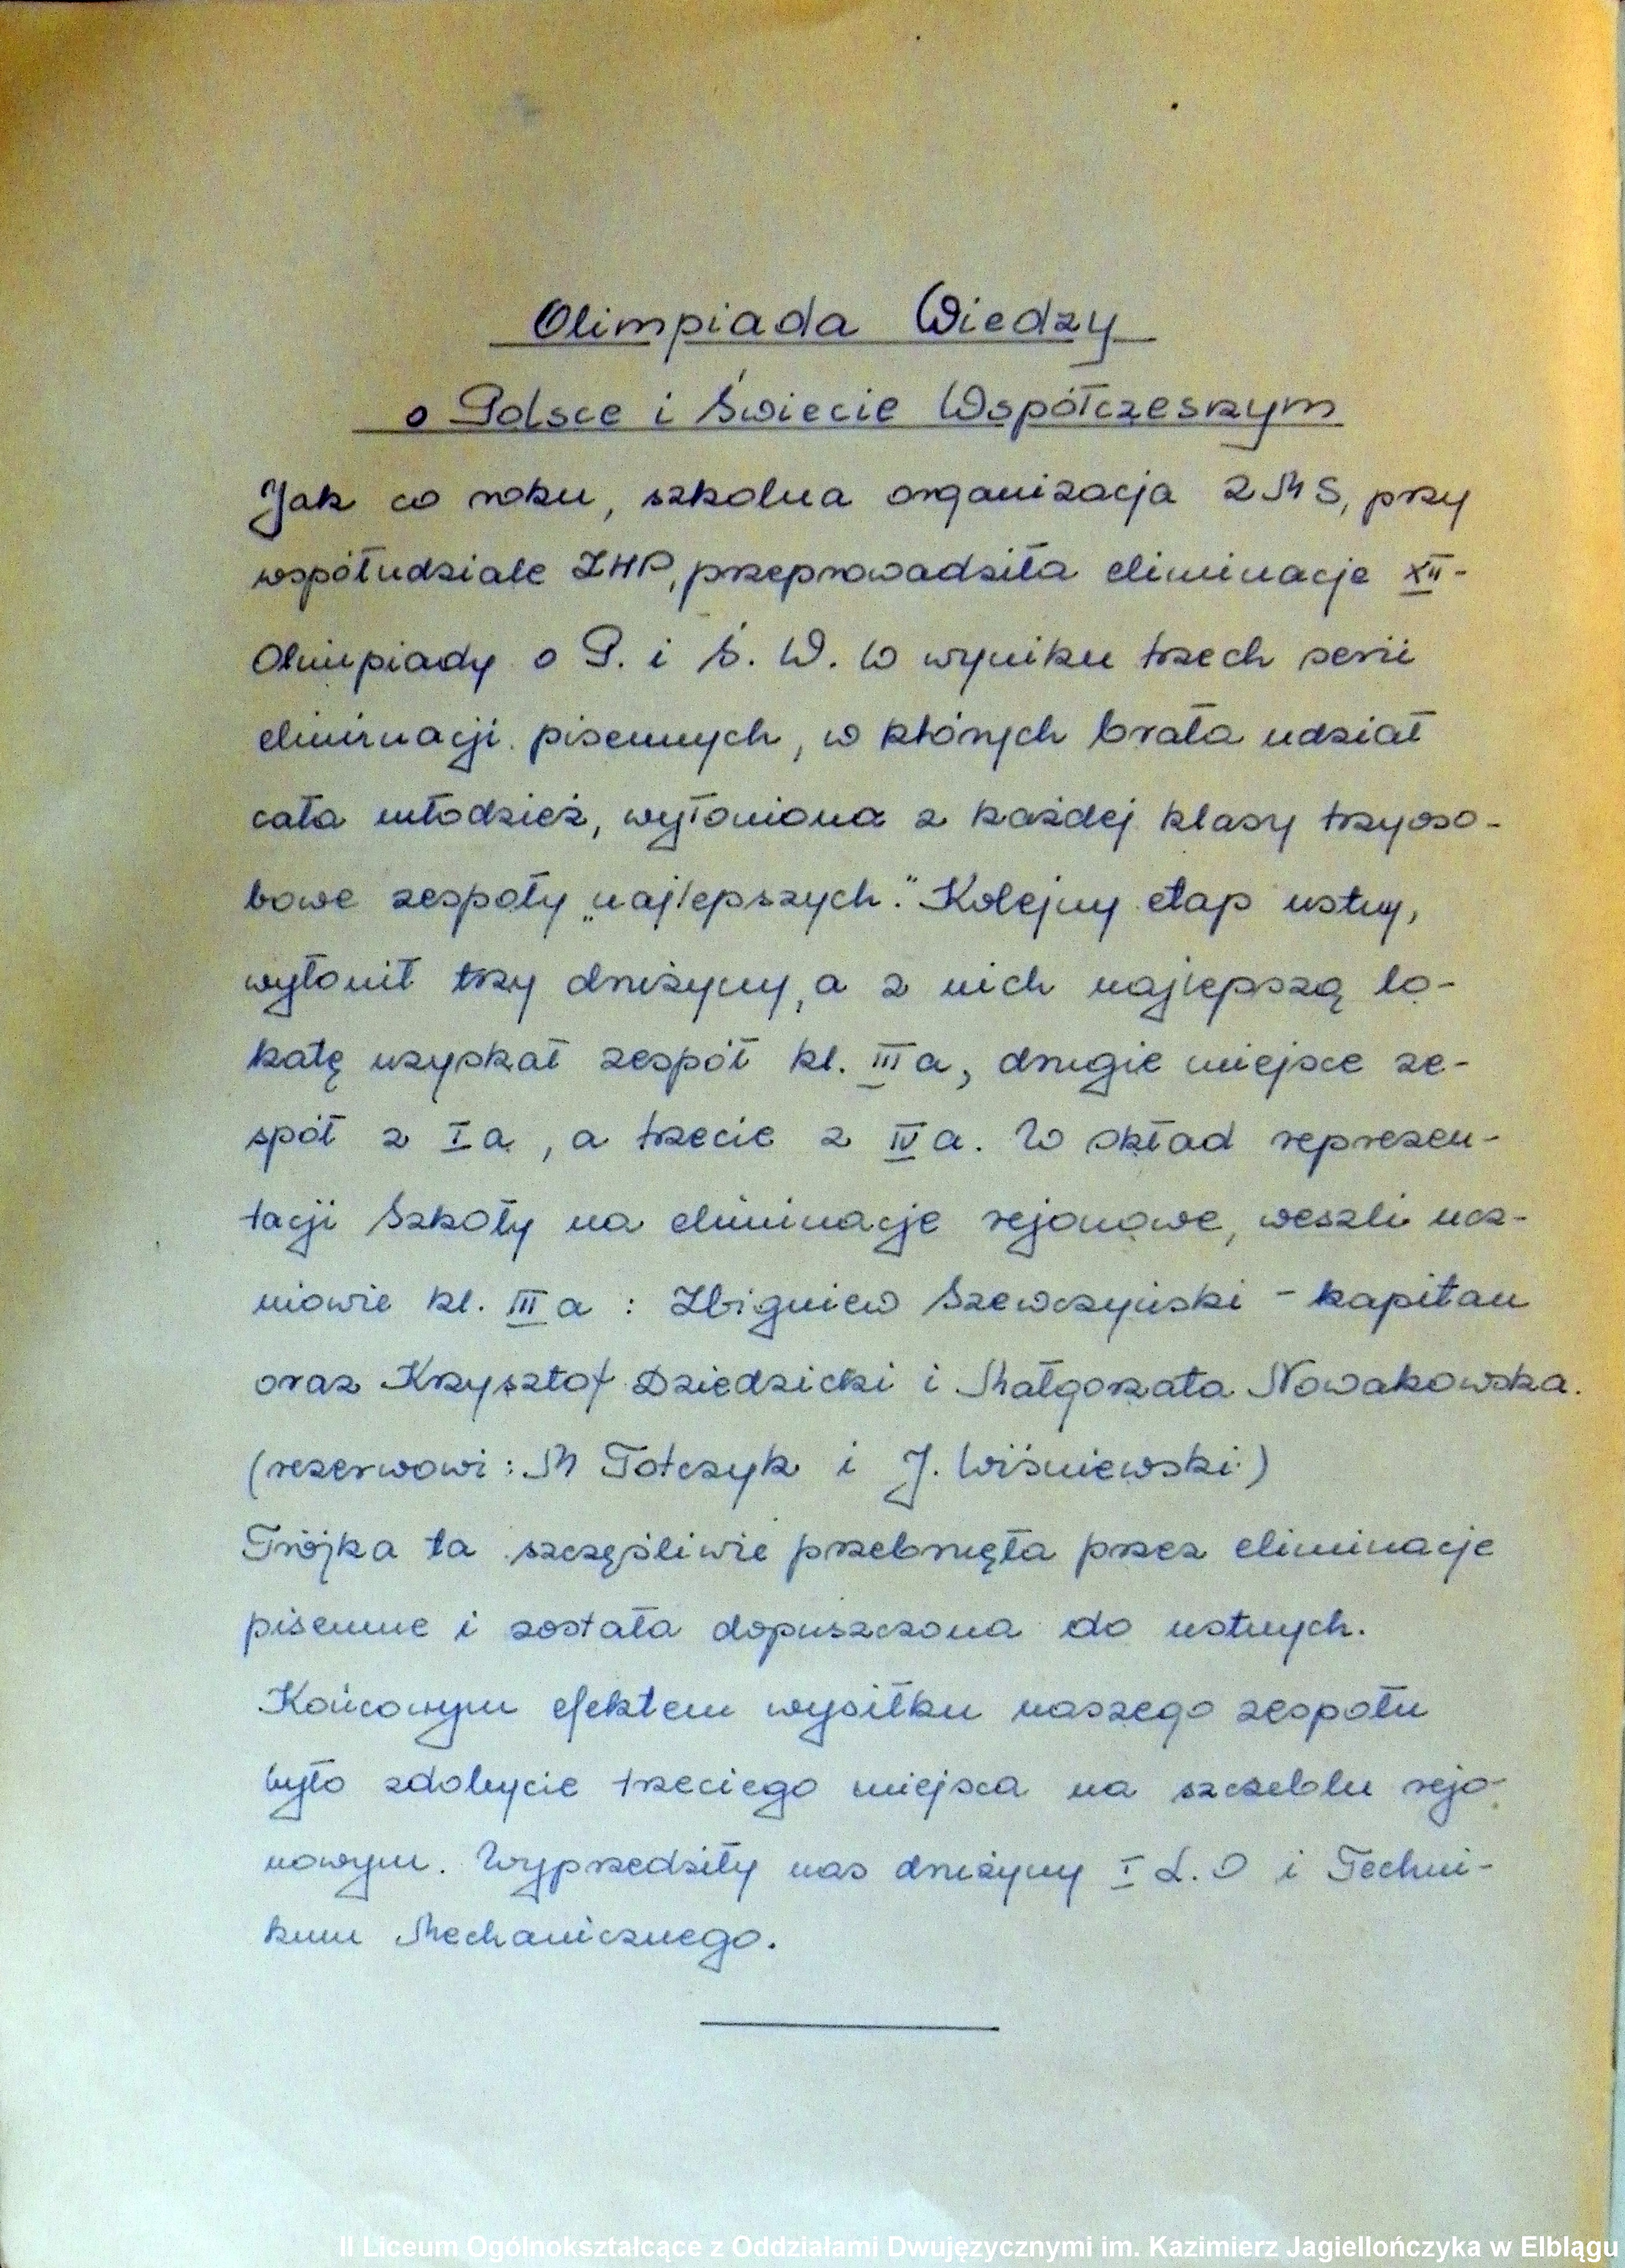 Olimpiada Wiedzy
o Polsce i Świecie Współczesnym
Jak co roku, szkolna organizacja ZMS, przy
współudziale ZHP, przeprowadziła eliminacje XII-
Olimpiady o P. i Ś. W. W wyniku trzech serii
eliminacji pisemnych, w których brała udział
cała młodzież, wyłoniona z każdej klasy trzyoso-
bowe zespoły „najlepszych." Kolejny etap ustny,
wyłonił trzy drużyny, a z nich najlepszą lo-
katę uzyskał zespół kl. III a, drugie miejsce ze-
spół z I a, a trzecie z IV a. W skład reprezen-
tacji Szkoły na eliminacje rejonowe, weszli ucz-
niowie kl. III a : Zbigniew Szewczyński - kapitan
oraz Krzysztof Dziedzicki i Małgorzata Nowakowska.
(rezerwowi: M Tołczyk i J. Wiśniewski)
Trójka ta szczęśliwie przebrnęła przez eliminacje
pisemne i została dopuszczona do ustnych.
Końcowym efektem wysiłku naszego zespołu
było zdobycie trzeciego miejsca na szczeblu rejo-
nowym. Wyprzedziły nas drużyny I L.O i Techni-
kum Mechanicznego.
II Liceum Ogólnokształcące z Oddziałami Dwujęzycznymi im. Kazimierz Jagiellończyka w Elblągu